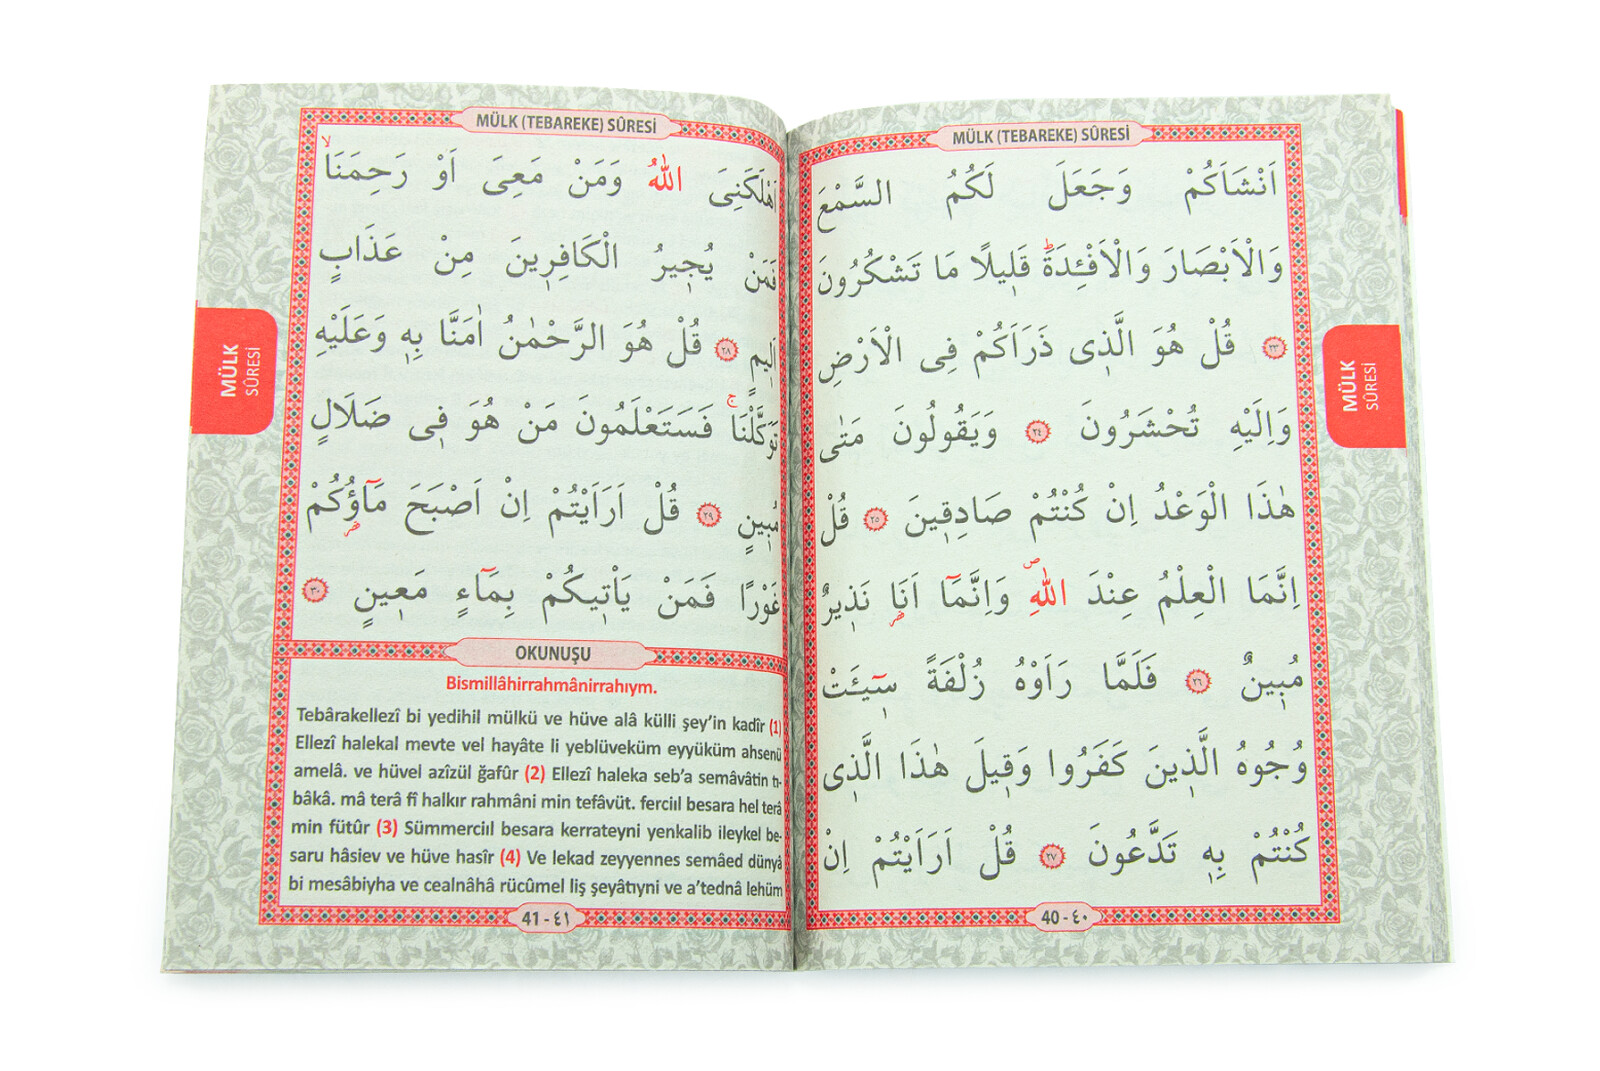 MÜLK (TEBAREKE) SÛRESİ
اَنْشَاَكُمْ وَجَعَلَ لَكُمُ السَّمْعَ
وَالْاَبْصَارَ وَالْاَفْـِٔدَةَۜ قَلٖيلًا مَا تَشْكُرُونَ
﴿٢٣﴾ قُلْ هُوَ الَّذٖى ذَرَاَكُمْ فِى الْاَرْضِ
وَاِلَيْهِ تُحْشَرُونَ ﴿٢٤﴾ وَيَقُولُونَ مَتٰى
هٰذَا الْوَعْدُ اِنْ كُنْتُمْ صَادِقٖينَ ﴿٢٥﴾ قُلْ
اِنَّمَا الْعِلْمُ عِنْدَ اللّٰهِۖ وَاِنَّمَٓا اَنَا نَذٖيرٌ
مُبٖينٌ ﴿٢٦﴾ فَلَمَّا رَاَوْهُ زُلْفَةً سٖٓيـَٔتْ
وُجُوهُ الَّذٖينَ كَفَرُوا وَقٖيلَ هٰذَا الَّذٖى
كُنْتُمْ بِهٖ تَدَّعُونَ ﴿٢٧﴾ قُلْ اَرَاَيْتُمْ اِنْ
40 - ٤٠
MÜLK
SÛRESİ
MÜLK (TEBAREKE) SÛRESİ
اَهْلَكَنِىَ اللّٰهُ وَمَنْ مَعِىَ اَوْ رَحِمَنَاۙ
فَمَنْ يُجٖيرُ الْكَافِرٖينَ مِنْ عَذَابٍ
اَلٖيمٍ ﴿٢٨﴾ قُلْ هُوَ الرَّحْمٰنُ اٰمَنَّا بِهٖ وَعَلَيْهِ
تَوَكَّلْنَاۚ فَسَتَعْلَمُونَ مَنْ هُوَ فٖى ضَلَالٍ
مُبٖينٍ ﴿٢٩﴾ قُلْ اَرَاَيْتُمْ اِنْ اَصْبَحَ مَٓاؤُكُمْ
غَوْرًا فَمَنْ يَاْتٖيكُمْ بِمَٓاءٍ مَعٖينٍ ﴿٣٠﴾
OKUNUŞU
Bismillâhirrahmânirrahıym.
Tebârakellezî bi yedihil mülkü ve hüve alâ külli şey’in kadîr (1)
Ellezî halekal mevte vel hayâte li yeblüveküm eyyüküm ahsenü
amelâ. ve hüvel azîzül ğafûr (2) Ellezî haleka seb’a semâvâtin tı-
bâkâ. mâ terâ fî halkır rahmâni min tefâvüt. ferciıl besara hel terâ
min fütûr (3) Sümmerciıl besara kerrateyni yenkalib ileykel be-
saru hâsiev ve hüve hasîr (4) Ve lekad zeyyennes semâed dünyâ
bi mesâbiyha ve cealnâhâ rücûmel liş şeyâtıyni ve a’tednâ lehüm
41 - ٤١
MÜLK
SÛRESİ